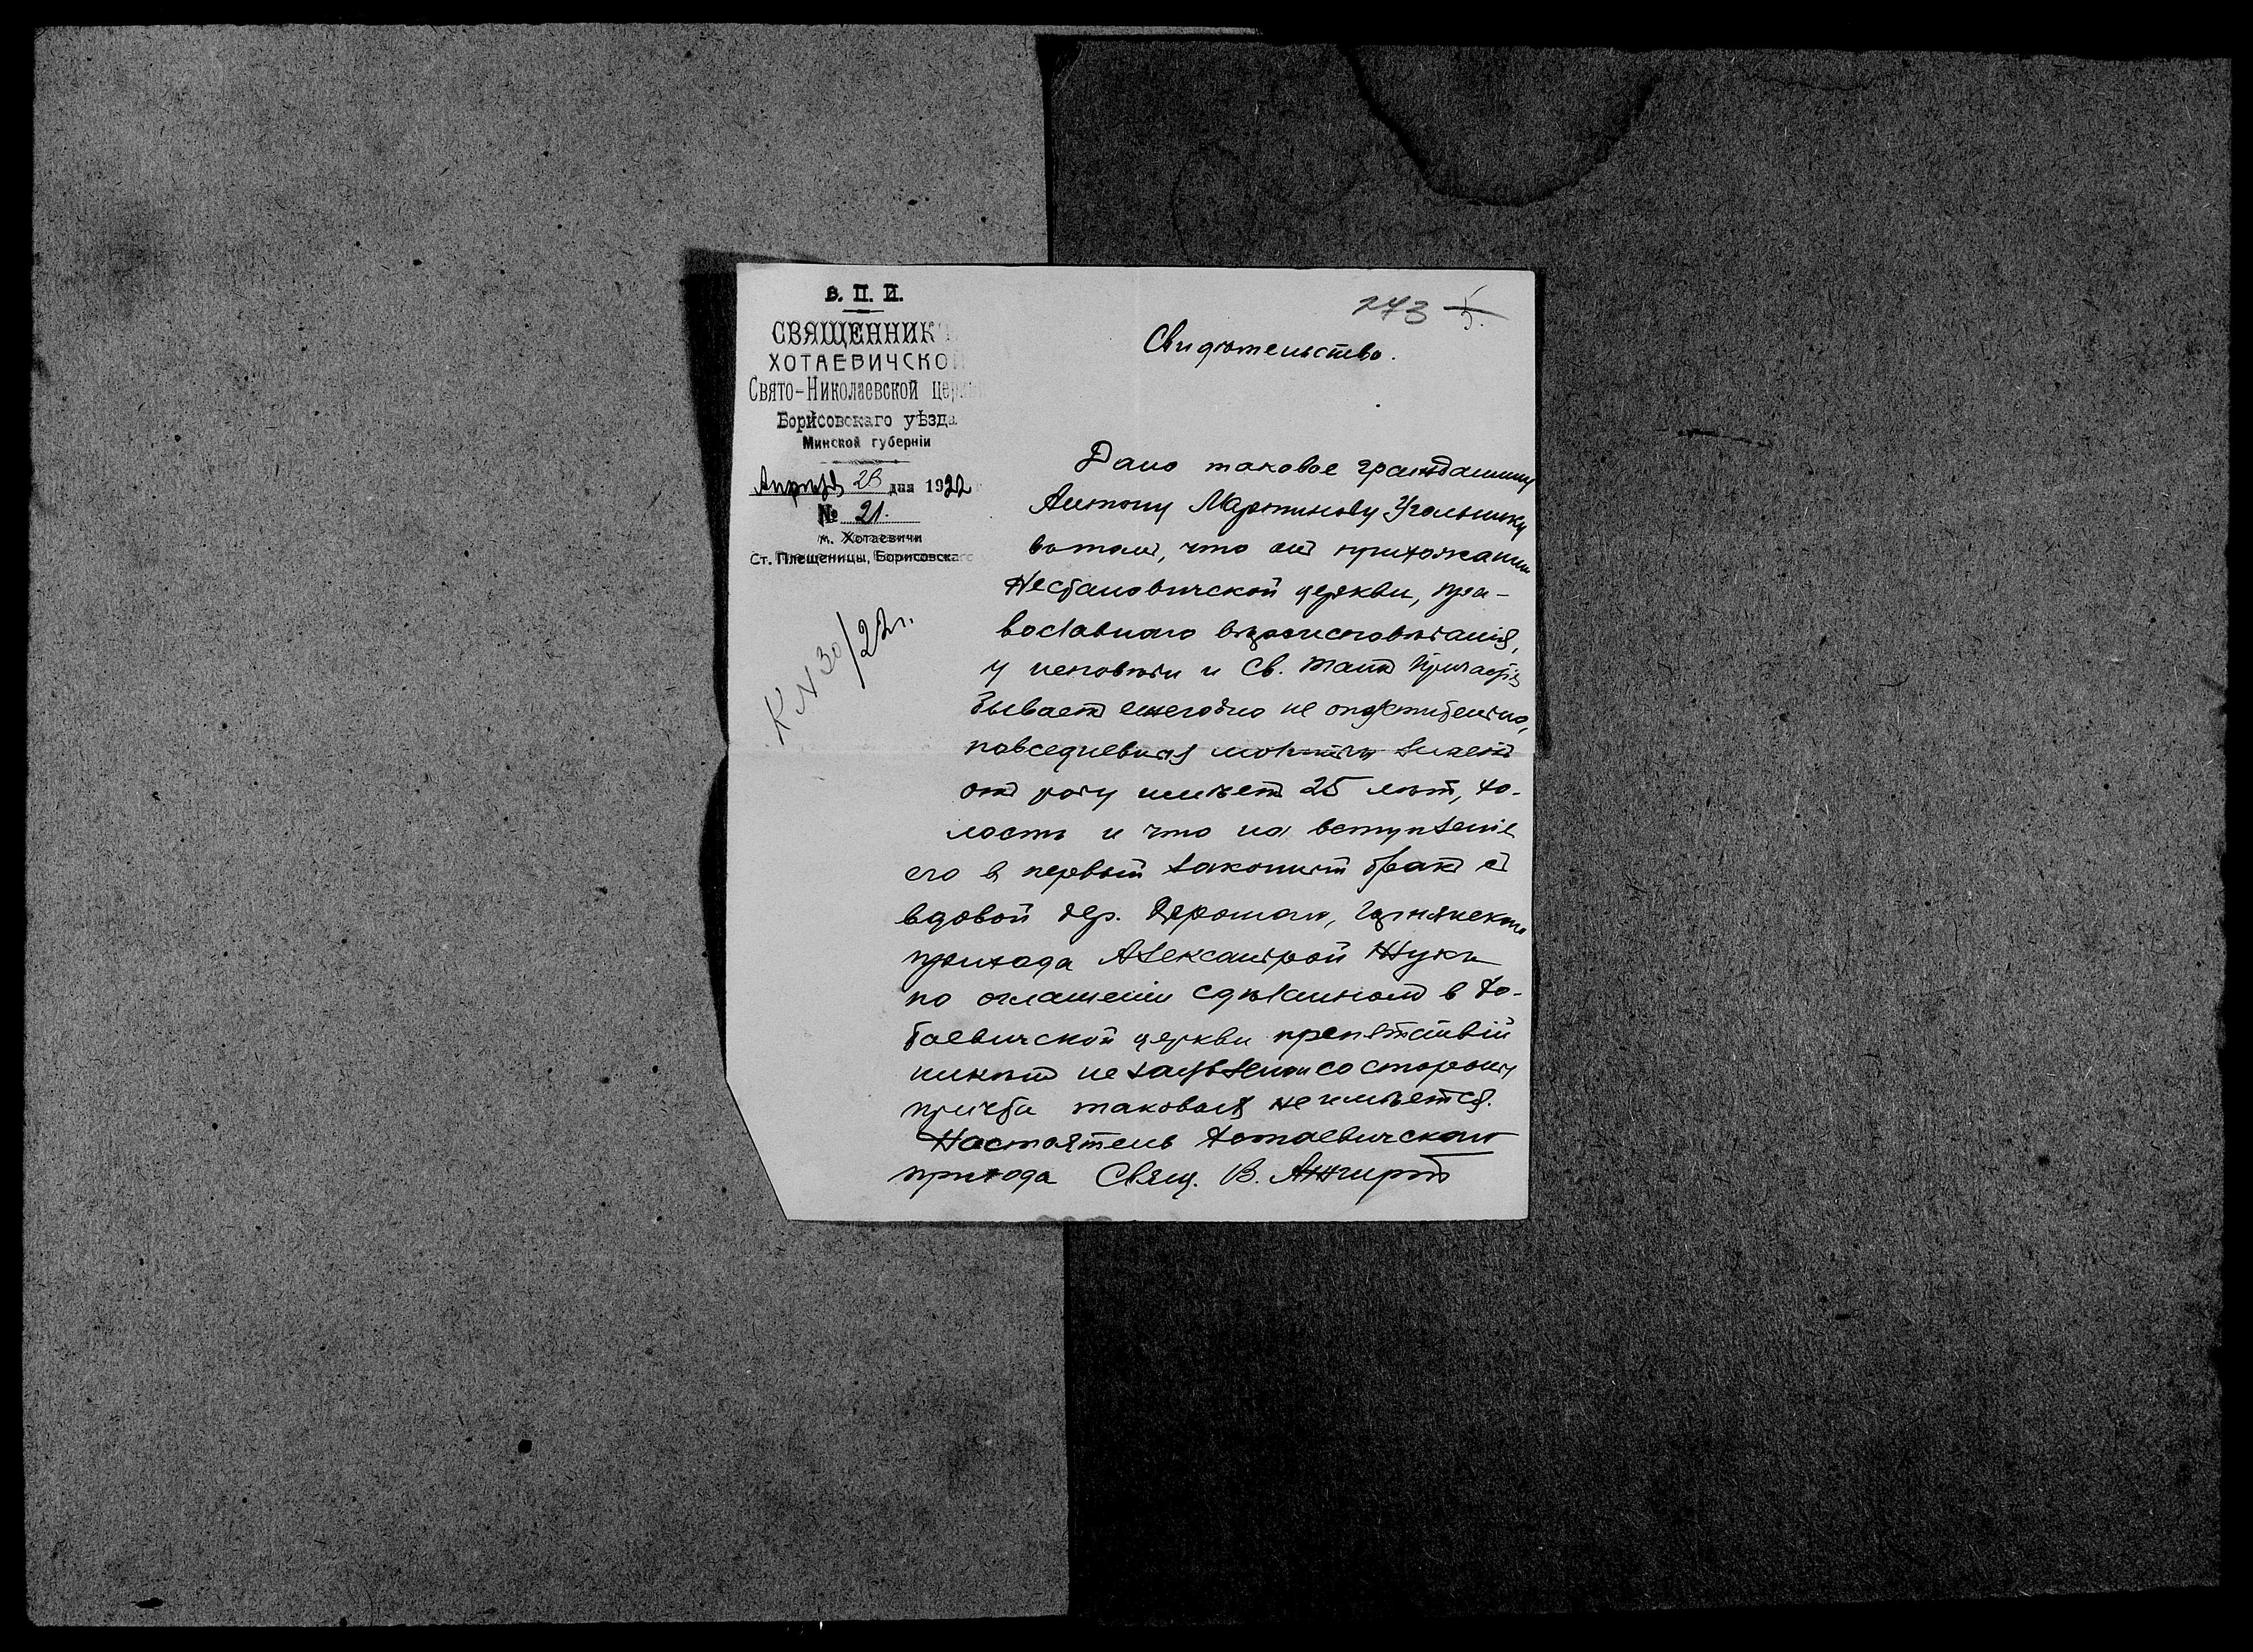 В. П. И.
СВЯЩЕННИК
ХОТАЕВИЧСКОЙ
Свято-Николаевской церкви
Борисовскаго уѣзда
Минской губерніи
Апрѣля 28 дня 1922
№ 21.
м. Хотаевичи
Ст. Плещеницы, Борисовскаго
К № 30/22 г.
273
Свидѣтельство.
Дано таковое гражданину
Антону Мартинову Угольнику
в томъ, что онъ прихожанин
Нестановичской церкви, пра-
вославного вѣроисповѣданія,
у исповѣди и Св. Таинъ Причастія
бывает ежегодно не опустительно,
повседневныя молитвы знаетъ
отъ роду имѣетъ 25 лѣт, хо-
лостъ и что на вступленіе
его в первый законный бракъ съ
вдовой дер.
прихода Александрой Жукъ
по оглашеніи сдѣланномъ в Хо-
таевичской церкви препятствій
никѣм не заявлено и со стороны
причта таковыя не имѣется.
Настоятель Хотаевичскаго
прихода Свящ. В.